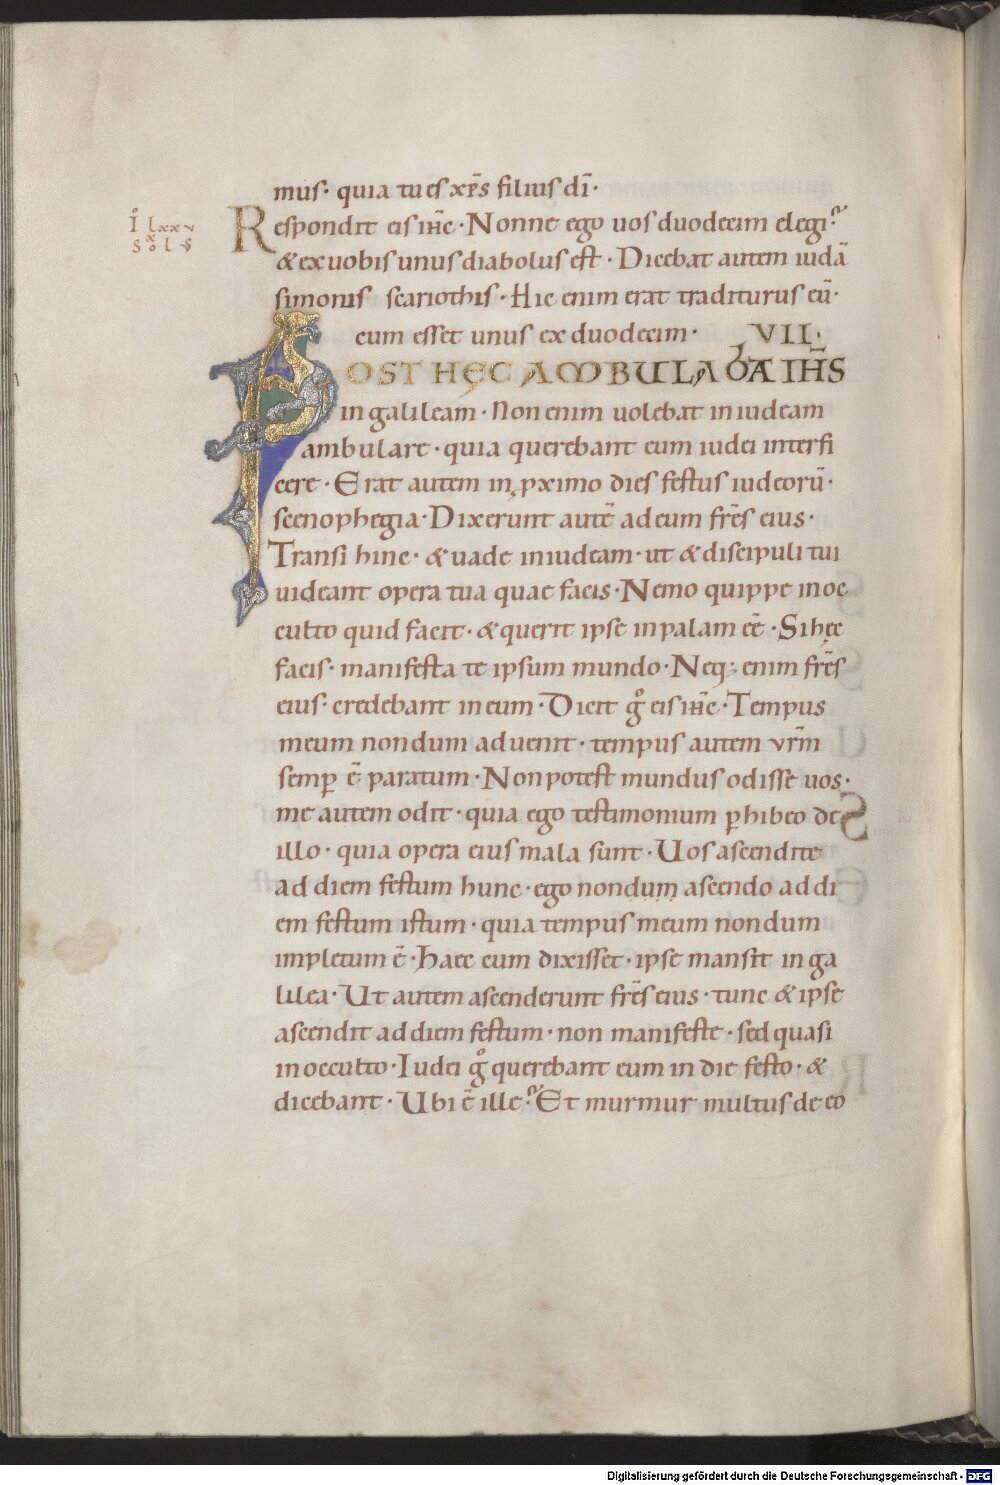 mus· quia tu es xp̄s filius dī·
Io lxxv
Respondit eis ih̄c· Nonne ego uos duodecim elegi?
x̊ol v
& ex uobis unus diabolus est· Dicebat autem iudā
simonis scariothis· Hic enim erat traditurus eū·
cum esset unus ex duodecim· VII·
POST HĘC AMBULABAT IH̄S
in galileam· Non enim uolebat in iudeam
ambulare· quia querebant eum iudei interfi
cere· Erat autem in ꝓximo dies festus iudeorū·
scenophegia· Dixerunt autē ad eum fr̄es eius·
Transi hinc· & uade in iudeam· ut & discipuli tui
uideant opera tua quae facis· Nemo quippe in oc
culto quid facit· & querit ipse in palam eē· Si hęc
facis· manifesta te ipsum mundo· Neq; enim fr̄es
eius· credebant in eum· Dicit g̊ eis ih̄c· Tempus
meum nondum aduenit· tempus autem vr̄m
semꝑ ē paratum· Non potest mundus odisse uos·
me autem odit· quia ego testimonium ꝑhibeo de
illo· quia opera eius mala sunt· Uos ascendite
ad diem festum hunc· ego nondum ascendo ad di
em festum istum· quia tempus meum nondum
impletum ē· Haec cum dixisset· ipse mansit in ga
lilea· Ut autem ascenderunt fr̄es eius· tunc & ipse
ascendit ad diem festum· non manifeste· sed quasi
in occulto· Iudei g̊ querebant eum in die festo· &
dicebant· Ubi ē ille? Et murmur multus de eo
Digitalisierung gefördert durch die Deutsche Forschungsgemeinschaft - DFG